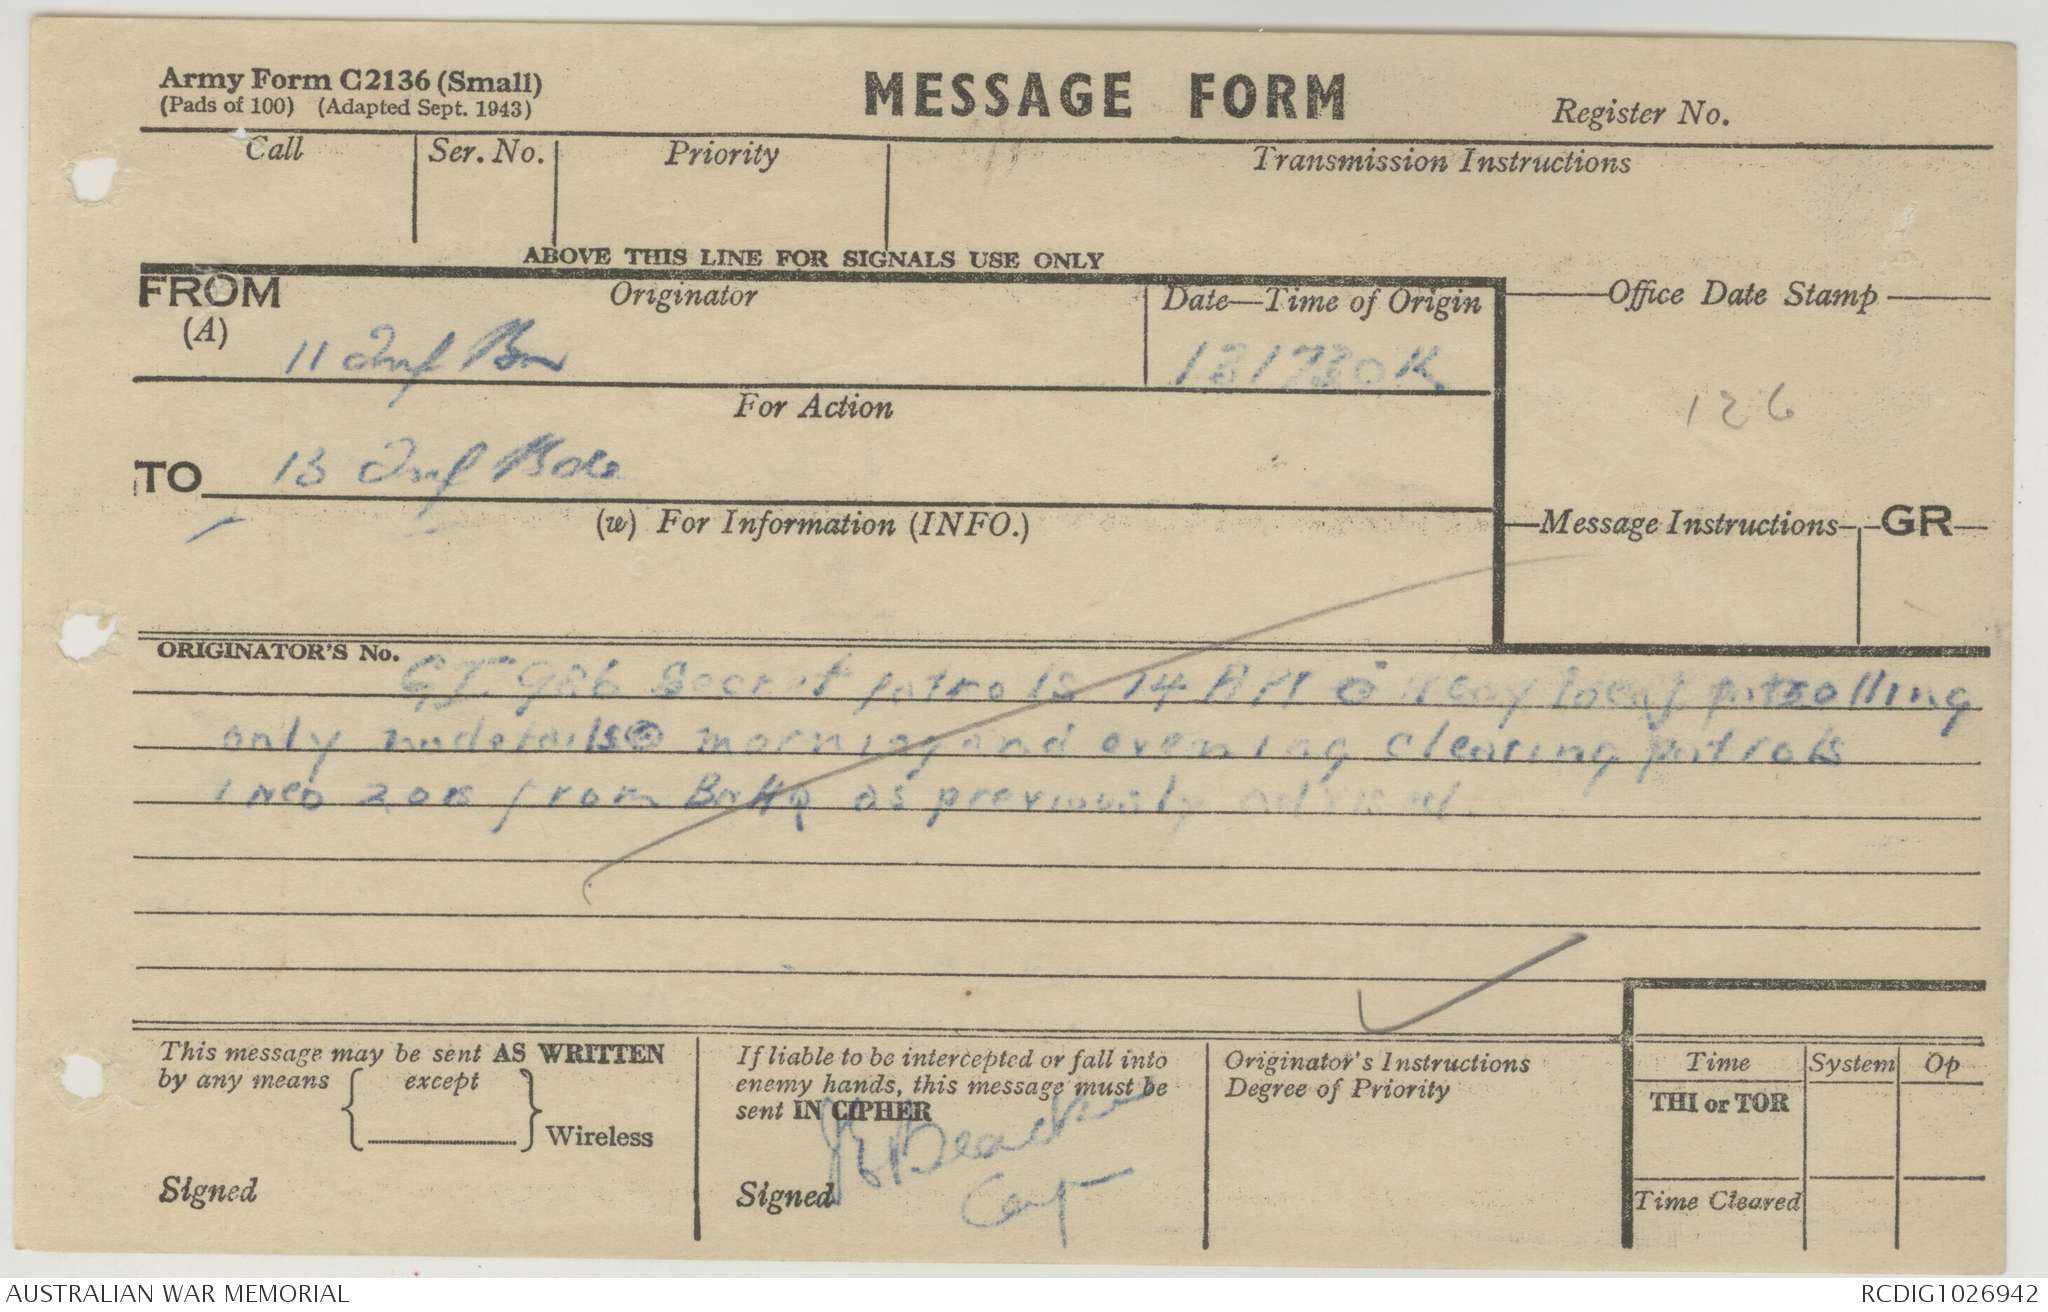 Army Form C2136 (Small)
(Pads of 100) (Adapted Sept. 1943)
MESSAGE FORM
Register No.
Call
Ser. No.
Priority
Transmission Instructions
ABOVE THIS LINE FOR SIGNALS USE ONLY
FROM
(A)
Originator
Date—Time of Origin
Office Date Stamp
11 Inf Bn
131730K
126
For Action
TO
13 Inf Bde
(w) For Information (INFO.)
Message Instructions
GR
ORIGINATOR'S No.
986 Secret patrols 14 local patrolling
only no details morning and evening clearing patrols
1 NCO 2 ors from Bn HQ as previously advised.
This message may be sent AS WRITTEN
by any means { except } Wireless
Signed
If liable to be intercepted or fall into
enemy hands, this message must be
sent IN CIPHER
Signed
Capt
Originator's Instructions
Degree of Priority
Time
System
Op
THI or TOR
Time Cleared
AUSTRALIAN WAR MEMORIAL
RCDIG1026942